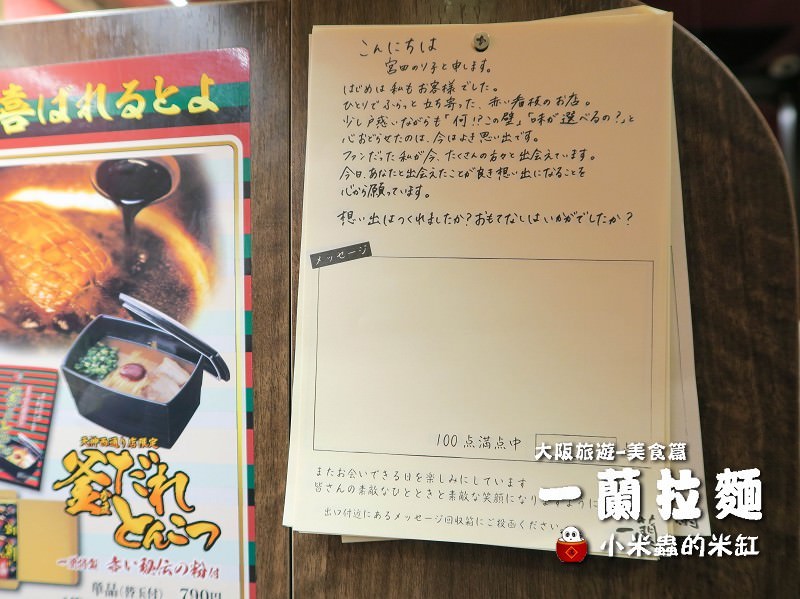 喜ばれるとよ
天神西通り店限定
釜だれ
とんこつ
一蘭特製 赤い秘伝の粉付
単品(替玉付) 790円
こんにちは
宮田のり子と申します。
はじめは私もお客様でした。
ひとりでふらっと立ち寄った、赤い看板のお店。
少し戸惑いながらも「何!?この壁」「味が選べるの?」と
心おどらせたのは、今はよき思い出です。
ファンだった私が今、たくさんの方々と出会えています。
今日、あなたと出会えたことが良き想い出になることを
心から願っています。
想い出はつくれましたか?おもてなしはいかがでしたか?
メッセージ
100点満点中
またお会いできる日を楽しみにしています
皆さんの素敵なひとときと素敵な笑顔になりますように
出口付近にあるメッセージ回収箱にご投函ください
一蘭
大阪旅遊-美食篇
一蘭拉麵
小米蟲的米缸